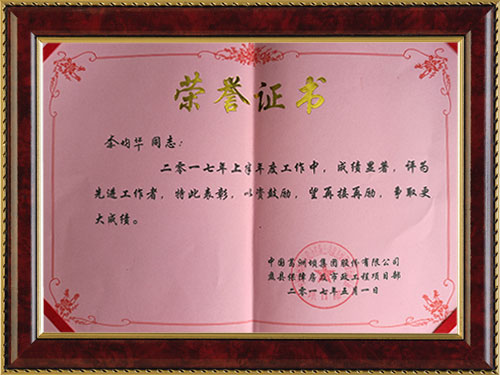 荣誉证书
李均华 同志：
二零一七年上半年度工作中，成绩显著，评为
先进工作者，特此表彰，以资鼓励，望再接再励，争取更
大成绩。
中国葛洲坝集团股份有限公司
盘县保障房及市政工程项目部
二零一七年五月一日